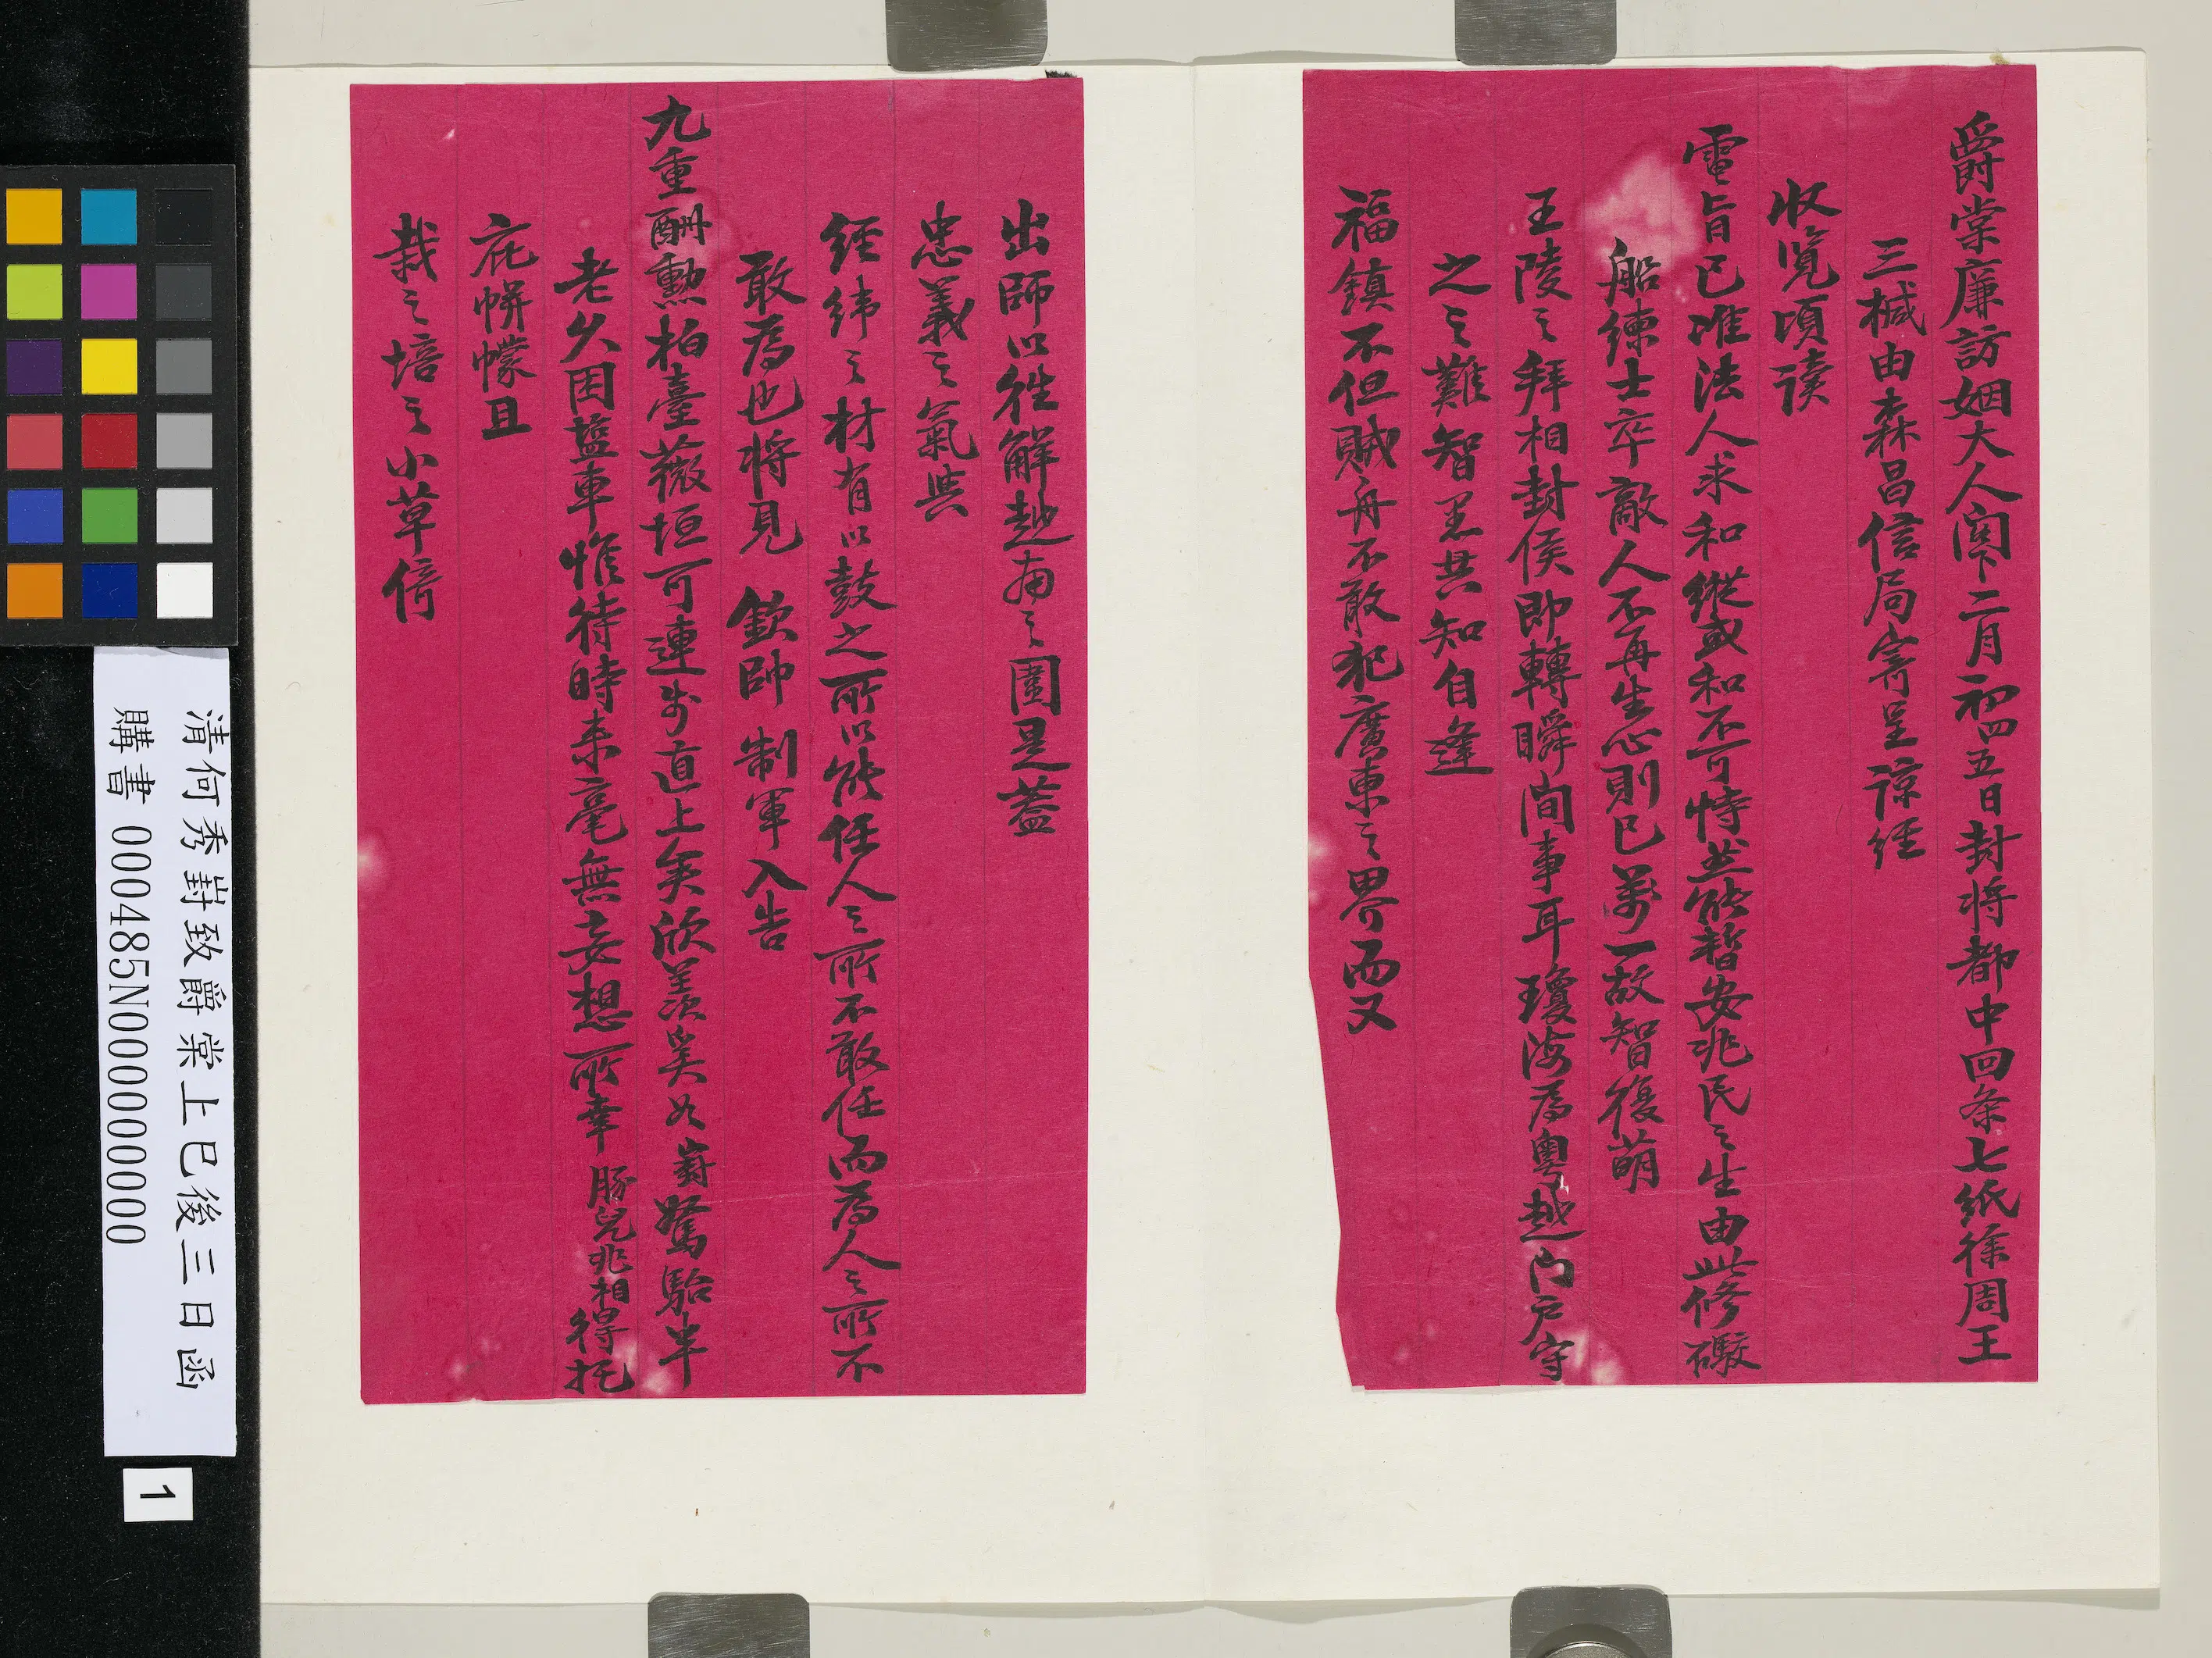 爵棠廉訪姻大人閣下二月初四五日封将都中回条七紙徐周王
三椷由森昌信局寄呈諒经
收览頃读
電旨已准法人求和縱或和不可恃並能暫安兆民之生由此修礮
船練士卒敵人不再生心則已萬一故智復萌
王陵之拜相封侯即轉瞬间事耳瓊海為粤越门户守
之之難智愚共知自逢
福鎮不但贼舟不敢犯廣東之界而又
出師以往解越南之圍是蓋
忠義之氣與
经緯之材有以鼓之所以能任人之所不敢任而為人之所不
敢為也将見 欽帥 制軍入告
九重酬勲柏臺薇垣可連步直上矣欣羡奚如崶駑駘半
老久困盐車惟待時来毫無妄想所幸豚兒兆相得托
庇帡幪且
栽之培之小草倚
清何秀崶致爵棠上巳後三日函
購書 000485N000000000
1